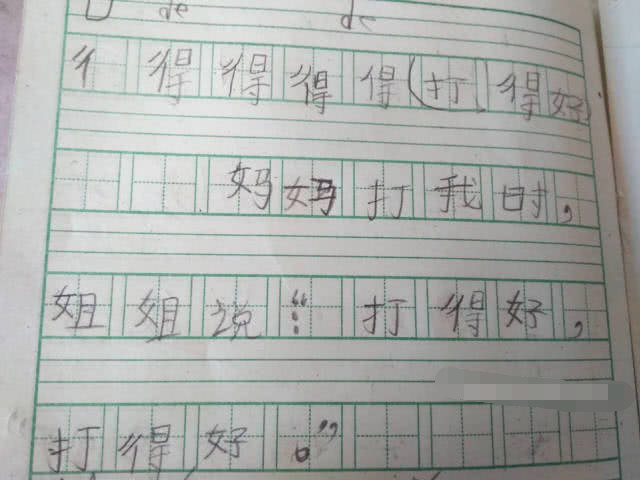 de de
彳 得 得 得 得 (打 得 好)
妈妈打我时，
姐姐说：“打得好，
打得好。”